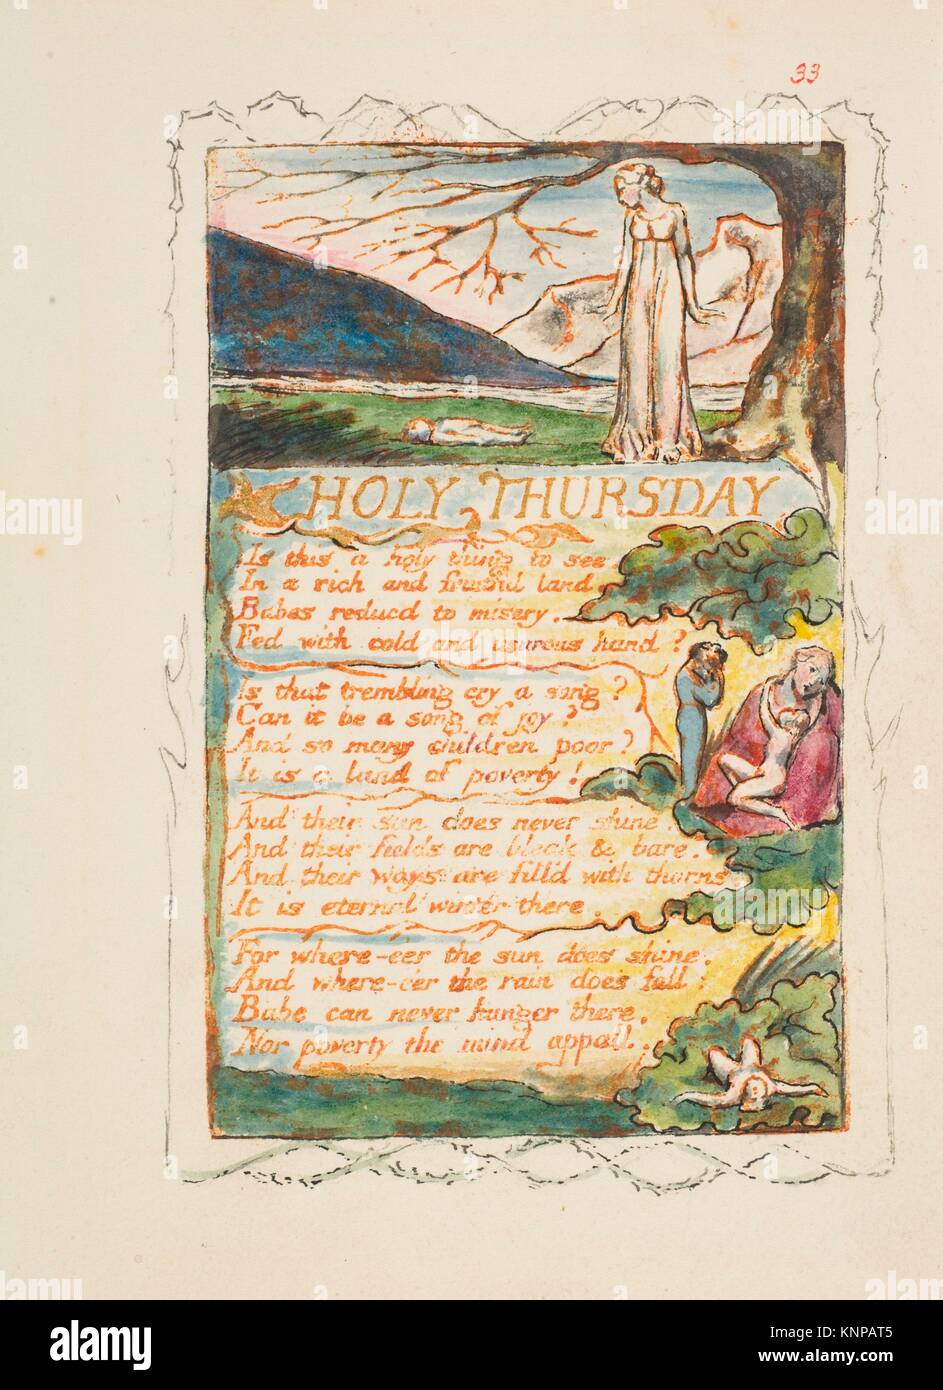 33
HOLY THURSDAY
Is this a holy thing to see
In a rich and fruitful land
Babes reducd to misery.
Fed with cold and usurous hand?
Is that trembling cry a song?
Can it be a song of joy?
And so many children poor?
It is a land of poverty!
And their sun does never shine.
And their fields are bleak & bare.
And their ways are fill'd with thorns
It is eternal winter there.
For where-e'er the sun does shine.
And where-e'er the rain does fall:
Babe can never hunger there,
Nor poverty the mind appall.
alamy
Image ID: KNPAT5
www.alamy.com